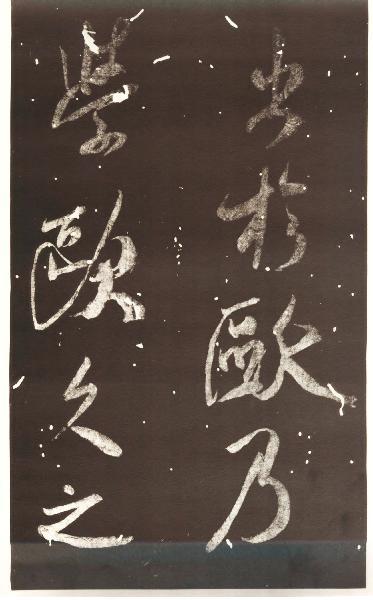 出於歐乃
學歐久之